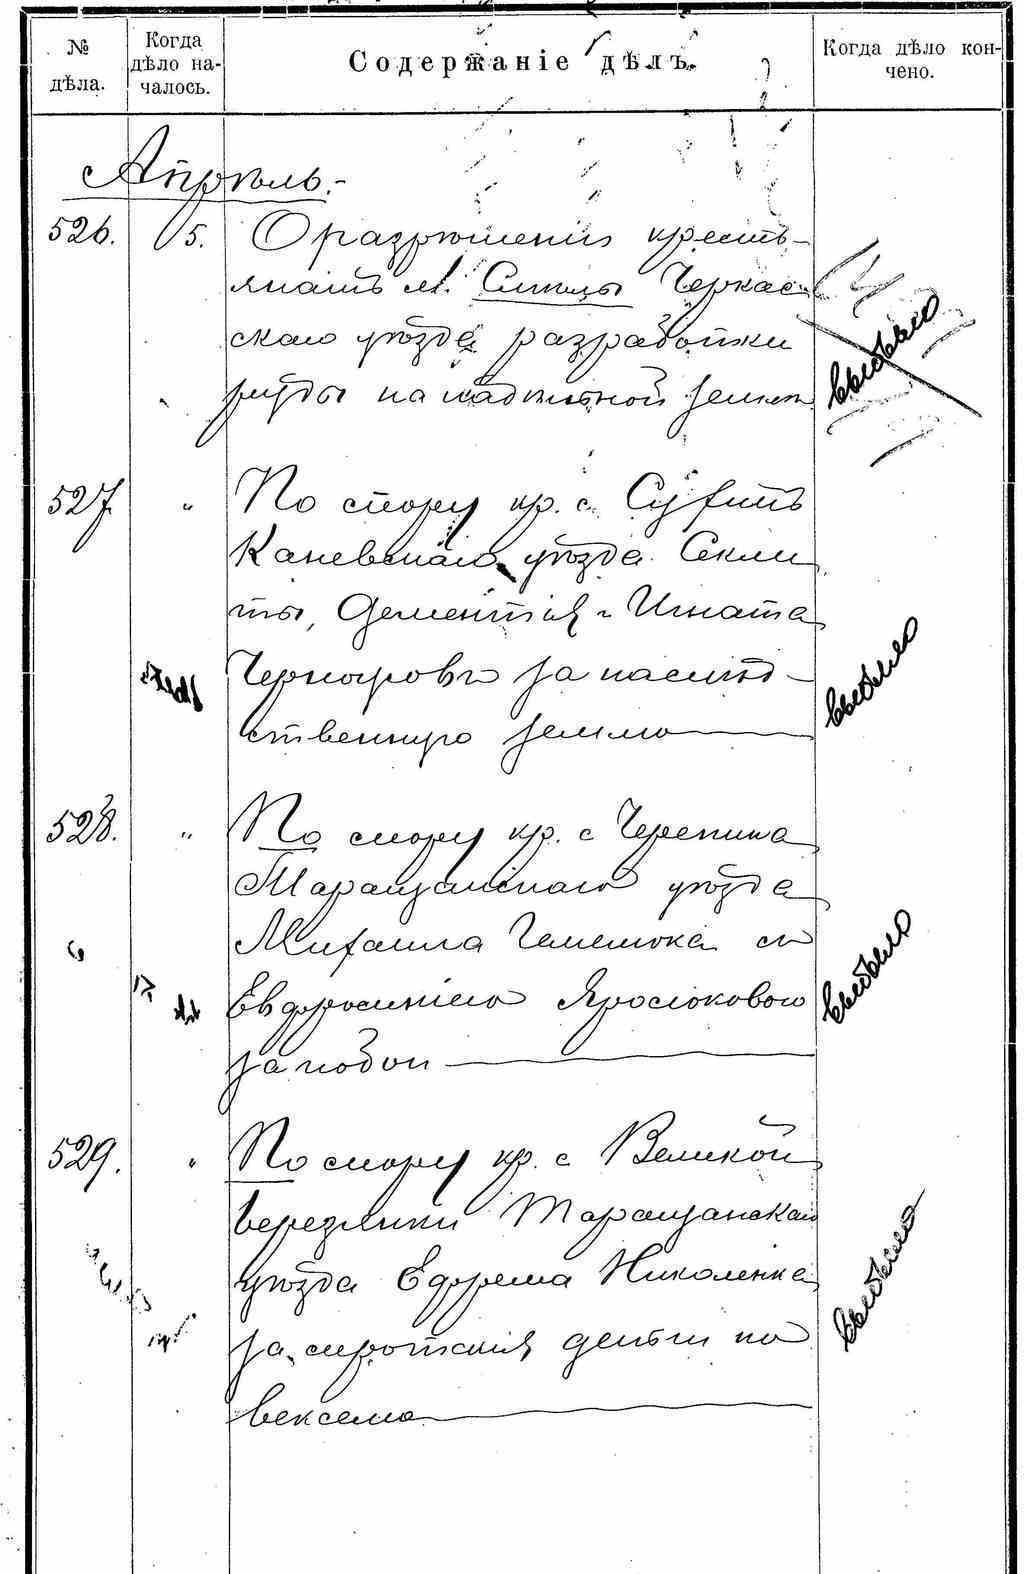 № дѣла.
Когда дѣло на-
чалось.
Содержаніе дѣлъ.
Когда дѣло кон-
чено.
Апрѣль.
526. 5. О разрѣшеніи кресть-
янамъ м. Смѣлы Черкас-
скаго уѣзда разработки
руды на надѣльной землѣ
выбыло
527. " По спору кр. с.
Каневскаго уѣзда
ты, Дементія и Игната
за наслѣд-
ственную землю
выбыло
528. " По спору кр. с Черепина
Таращанскаго уѣзда
Михаила съ
Евфросиніею
за побои
выбыло
529. " По спору кр. с Великой
Березянки Таращанскаго
уѣзда Ефрема Николенка
за сиротскія деньги по
векселю
выбыло